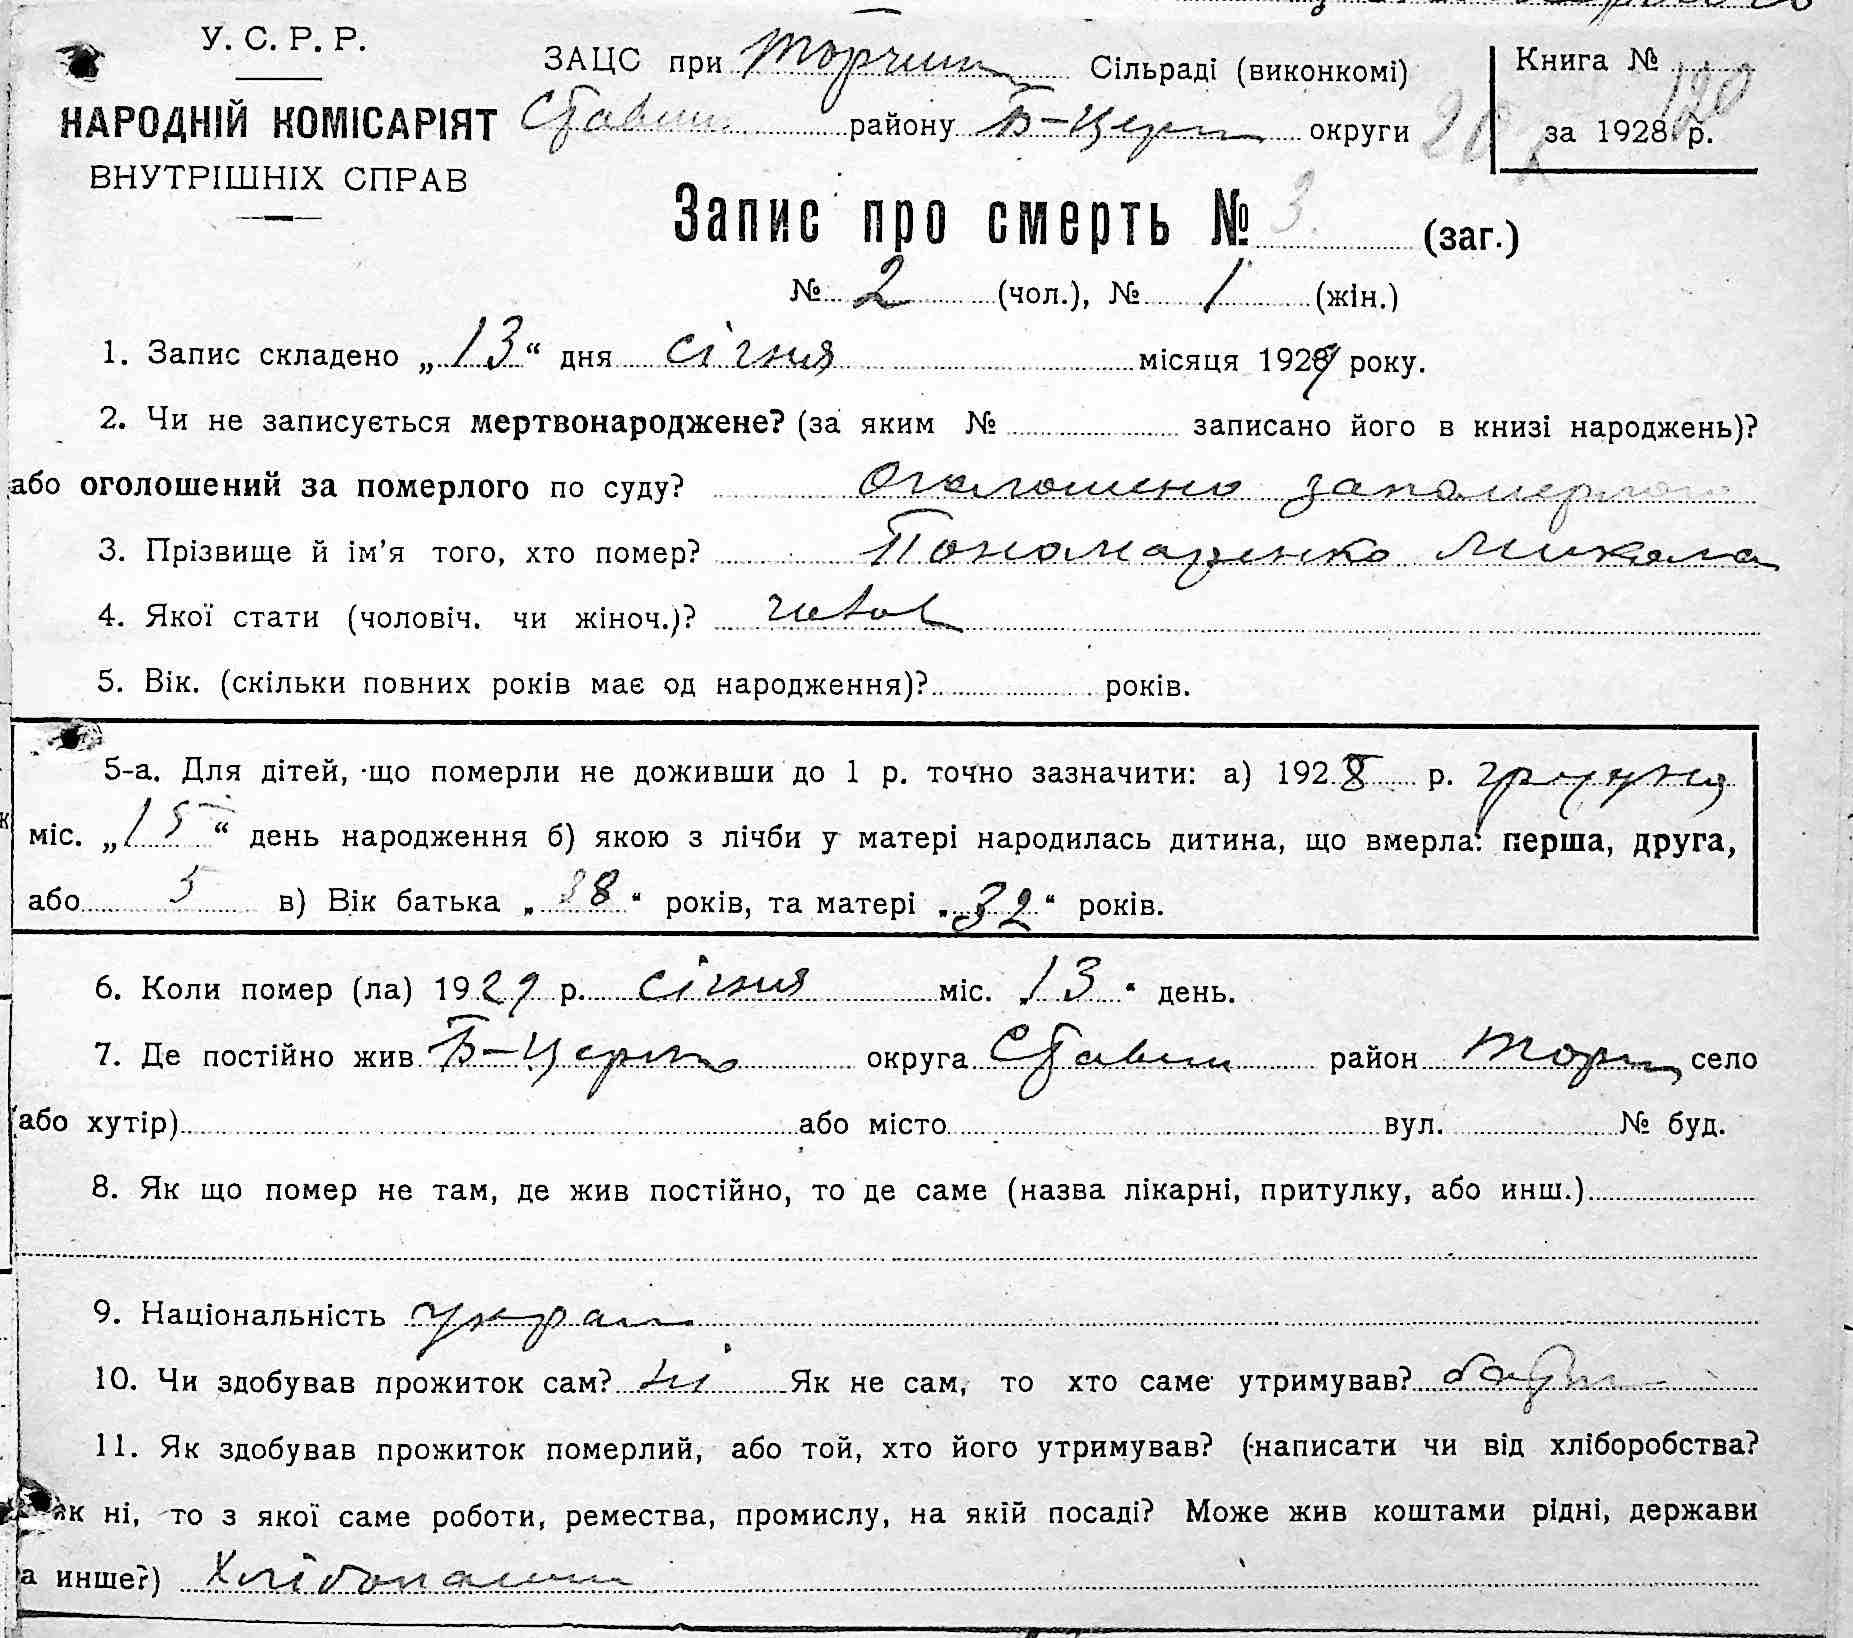 У. С. Р. Р.
НАРОДНІЙ КОМІСАРІЯТ
ВНУТРІШНІХ СПРАВ
ЗАЦС при Торчиц Сільраді (виконкомі)
Ставищ району Б-Церк округи
Книга №
за 1928 р.
120
Запис про смерть № 3. (заг.)
№ 2 (чол.), № 1 (жін.)
1. Запис складено „13“ дня січня місяця 1929 року.
2. Чи не записується мертвонароджене? (за яким № записано його в книзі народжень)?
або оголошений за померлого по суду? Оголошено запомерлого
3. Прізвище й ім’я того, хто помер? Пономаренко Микола
4. Якої стати (чоловіч. чи жіноч.)? чолов
5. Вік. (скільки повних років має од народження)? років.
5-а. Для дітей, що померли не доживши до 1 р. точно зазначити: а) 1928 р. грудня
міс. „15“ день народження б) якою з лічби у матері народилась дитина, що вмерла: перша, друга,
або 5 в) Вік батька „38“ років, та матері „32“ років.
6. Коли помер (ла) 1929 р. січня міс. „13“ день.
7. Де постійно жив Б-Церк округа Ставищ район Торч село
(або хутір) або місто вул. № буд.
8. Як що помер не там, де жив постійно, то де саме (назва лікарні, притулку, або инш.)
9. Національність україн
10. Чи здобував прожиток сам? ні Як не сам, то хто саме утримував? батьк
11. Як здобував прожиток померлий, або той, хто його утримував? (написати чи від хліборобства?
як ні, то з якої саме роботи, ремества, промислу, на якій посаді? Може жив коштами рідні, держави
а инше?) Хлібопашц